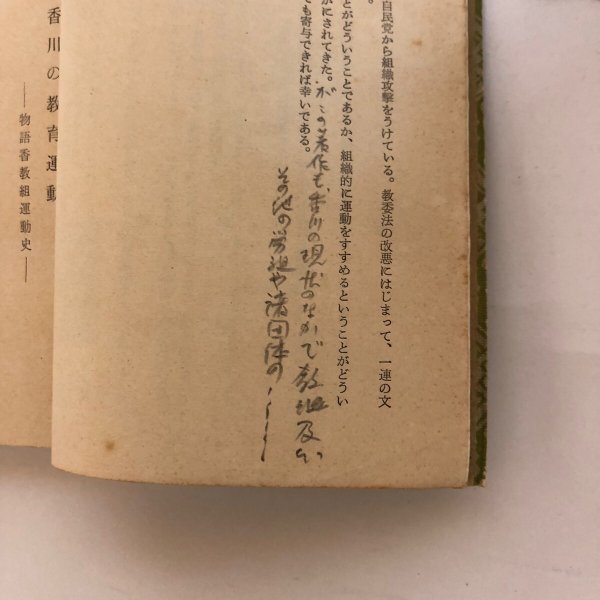 自民党から組織攻撃をうけている。教委法の改悪にはじまって、一連の文
。
とがどういうことであるか、組織的に運動をすすめるということがどうい
かにされてきた。
がこの著作も、香川の現状のなかで教組及び
でも寄与できれば幸いである。
その他の労組や諸団体の
香川の教育運動
――物語香教組運動史――